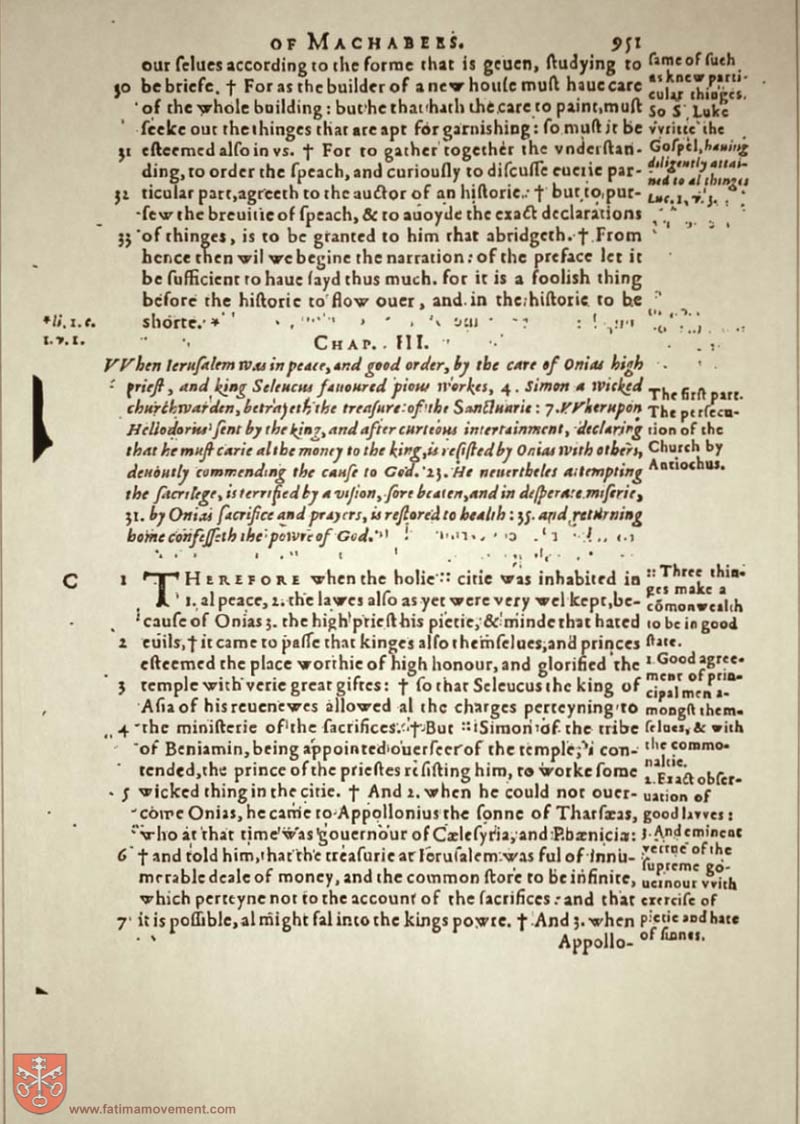 OF MACHABEES. 951
our ſelues according to the forme that is geuen, ſtudying to
30 be briefe. † For as the builder of a new houſe muſt haue care
of the whole building: but he that hath the care to paint, muſt
ſeeke out the thinges that are apt for garniſhing: ſo muſt it be
31 eſteemed alſo in vs. † For to gather together the vnderſtan-
ding, to order the ſpeach, and curiouſly to diſcuſſe euerie par-
32 ticular part, agreeth to the auctor of an hiſtorie: † but to pur-
ſew the breuitie of ſpeach, & to auoyde the exact declarations
33 of thinges, is to be granted to him that abridgeth. † From
hence then wil we begine the narration: of the preface let it
be ſufficient to haue ſayd thus much. for it is a fooliſh thing
before the hiſtorie to flow ouer, and in the hiſtorie to be
ſhorte. *
ſame of ſuch
as knew parti-
cular thinges.
So S. Luke
vvritte the
Goſpel, hauing
diligently attai-
ned to al thinges
Luc. 1, v. 3.
*li. 1. c.
1. v. 1.
CHAP. III.
VVhen Ieruſalem was in peace, and good order, by the care of Onias high
prieſt, and king Seleucus fauoured pious workes, 4. Simon a wicked
churchwarden, betrayeth the treaſure of the Sanctuarie: 7. VVherupon
Heliodorius ſent by the king, and after curteous intertainment, declaring
that he muſt carie al the money to the king, is reſiſted by Onias with others,
deuoutly commending the cauſe to God. 23. He neuertheles attempting
the ſacrilege, is terrified by a viſion, ſore beaten, and in deſperate miſerie,
31. by Onias ſacrifice and prayers, is reſtored to health: 35. and returning
home confeſſeth the powre of God.
The firſt part.
The perſecu-
tion of the
Church by
Antiochus.
C 1 THEREFORE when the holie :: citie was inhabited in
1. al peace, 2. the lawes alſo as yet were very wel kept, be-
cauſe of Onias 3. the high prieſt his pietie, & minde that hated
2 euils, † it came to paſſe that kinges alſo themſelues, and princes
eſteemed the place worthie of high honour, and glorified the
3 temple with verie great giftes: † ſo that Seleucus the king of
Aſia of his reuenewes allowed al the charges perteyning to
4 the miniſterie of the ſacrifices. † But :: Simon of the tribe
of Beniamin, being appointed ouerſeer of the temple, 1 con-
tended, the prince of the prieſtes reſiſting him, to worke ſome
5 wicked thing in the citie. † And 2. when he could not ouer-
come Onias, he came to Appollonius the ſonne of Tharſæas,
who at that time was gouernour of Cæleſyria, and Phænicia:
6 † and told him, that the treaſurie at Ieruſalem was ful of innu-
merable deale of money, and the common ſtore to be infinite,
which perteyne not to the account of the ſacrifices: and that
7 it is poſſible, al might fal into the kings powre. † And 3. when
Appollo-
:: Three thin-
ges make a
cõmonwealth
to be in good
ſtate.
1. Good agree-
ment of prin-
cipal men a-
mongſt them-
ſelues, & with
the commo-
naltie.
2. Exact obſer-
uation of
good lavves:
3. And eminent
vertue of the
ſupreme go-
uernour vvith
exerciſe of
pietie and hate
of ſinnes.
www.fatimamovement.com